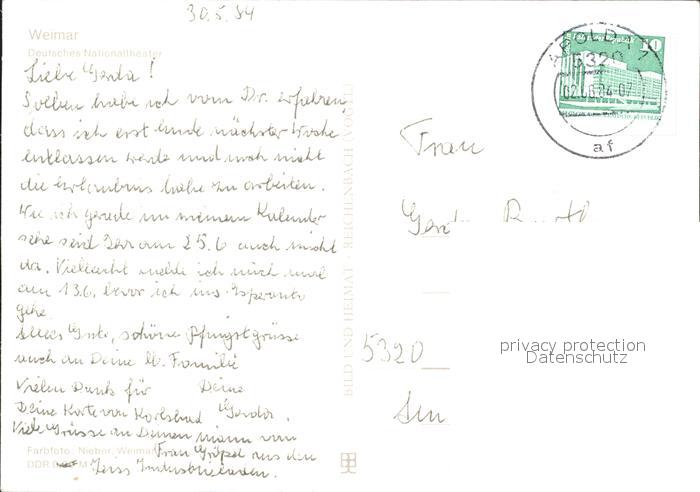 30.5.84
Weimar
Deutsches Nationaltheater
Liebe Gerda!
Soeben habe ich vom Dr. erfahren,
dass ich erst Ende nächster Woche
entlassen werde und noch nicht
die Erlaubnis habe zu arbeiten.
Wie ich gerade in meinem Kalender
sehe seid Ihr am 25.6 auch nicht
da. Vielleicht melde ich mich mal
am 13.6. bevor ich ins Esperanto
gehe
Alles Gute, schöne Pfingstgrüsse
auch an Deine lb. Familie
Vielen Dank für Deine
Deine Karte von Karlsbad Gerda.
Viele Grüsse an Deinen Mann von
Frau aus den
Zeiss Industrieladen.
Farbfoto: Nieber, Weimar
DDR
BILD UND HEIMAT REICHENBACH (VOGTL)
APOLDA 1
5320
02.06.84-07
af
10
Frau
5320
privacy protection
Datenschutz